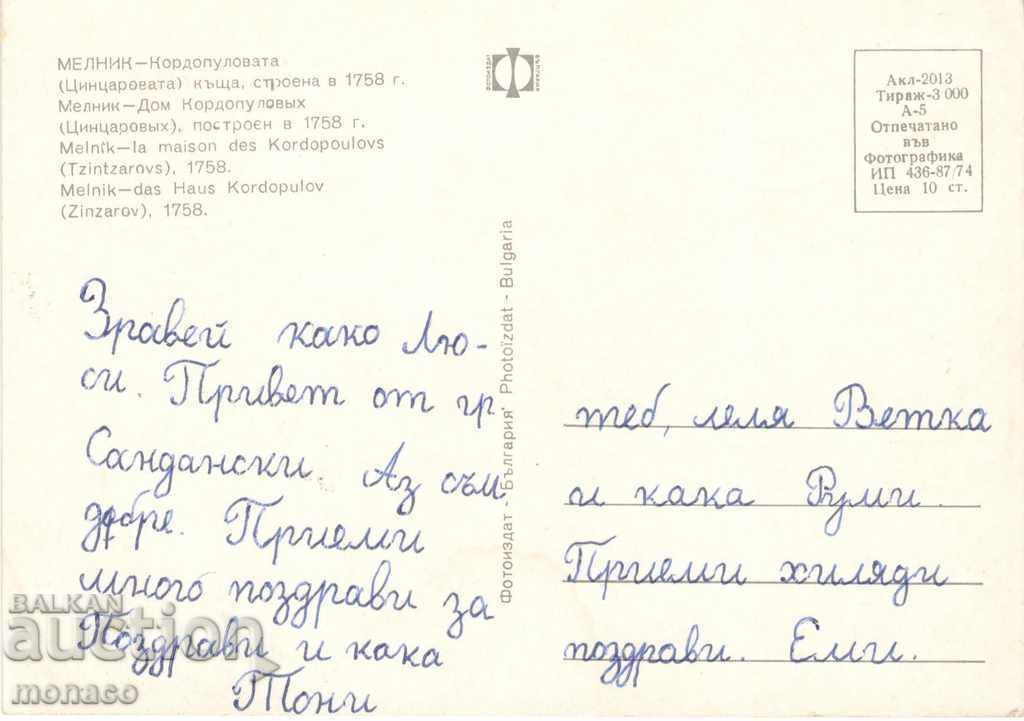 МЕЛНИК—Кордопуловата
(Цинцаровата) къща, строена в 1758 г.
Мелник—Дом Кордопуловых
(Цинцаровых), построен в 1758 г.
Melnik—la maison des Kordopoulovs
(Tzintzarovs), 1758.
Melnik—das Haus Kordopulov
(Zinzarov), 1758.
Акл-2013
Тираж-3 000
А-5
Отпечатано
във
Фотографика
ИП 436-87/74
Цена 10 ст.
Фотоиздат - „България" Photoïzdat - Bulgaria
Зравей како Лю-
си. Привет от гр
Сандански. Аз съм
добре. Приеми
много поздрави за
Поздрави и кака
Тони
теб, леля Ветка
и кака Руми.
Приеми хиляди
поздрави. Еми.
BALKAN
auction
monaco